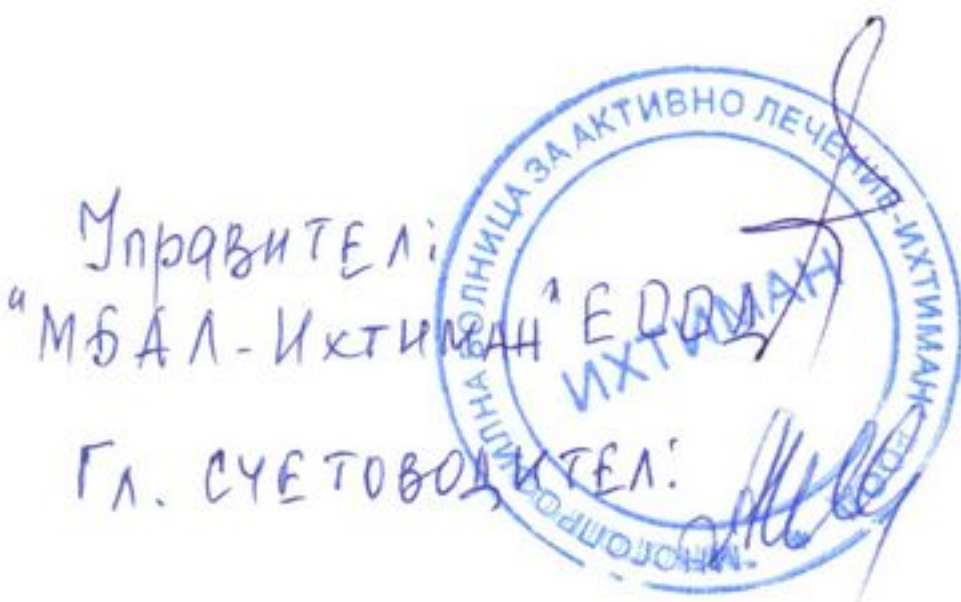 Управител:
"МБАЛ-Ихтиман" ЕООД
Гл. счетоводител:
"МНОГОПРОФИЛНА БОЛНИЦА ЗА АКТИВНО ЛЕЧЕНИЕ-ИХТИМАН" ЕООД
ИХТИМАН